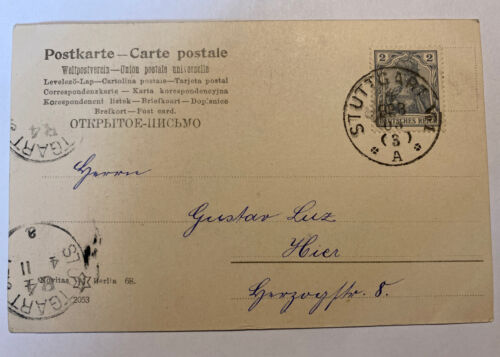 Postkarte — Carte postale
Weltpostverein — Union postale universelle
Levelező-Lap — Cartolina postale — Tarjeta postal
Correspondenzkarte — Karta korespondencyjna
Korespondenční lístek — Briefkaart — Dopisnice
Brefkort — Post card.
ОТКРЫТОЕ-ПИСЬМО
2 2
DEUTSCHES REICH
STUTTGART
(3)
* A *
Herrn
Gustav Luz
Hier
Herzogstr. 8.
TGART
R4
STU
TGART
4
11
8
Novitas N Berlin 68.
2053